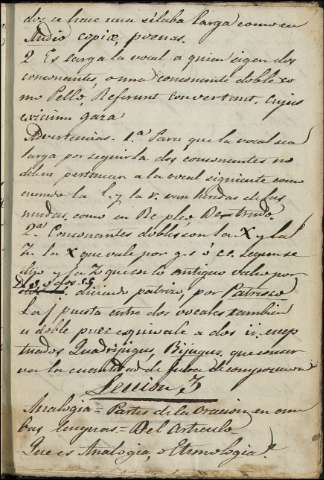 dos se hace una sílaba larga como en
Audio copiæ, poenas.
2 Es larga la vocal a quien siguen dos
consonantes o una consonante doble co
mo Pello, Referunt convertant, Cujus
gaza
Advertencias. 1.ª Para que la vocal sea
larga por seguirla dos consonantes no
deben pertenecer a la vocal siguiente como
cuando la l. y la r. van
mudas, como en Re pleo Re trudo.
2.ª Consonantes dobles son la X y la
Z. la X que vale por g.s ó cs.
y la Z que en lo antiguo valia por
diciendo patriso, por Patrizo
La j puesta entre dos vocales tambien
es doble pues equivale a dos ii.
tuados Quadrijugus, Bijugus, que conser
van la cuantidad de su composicion
Leccion 3
Analogia = Partes de la Oracion en am
bas lenguas = Del Articulo
Que es Analogia, o Etimologia?